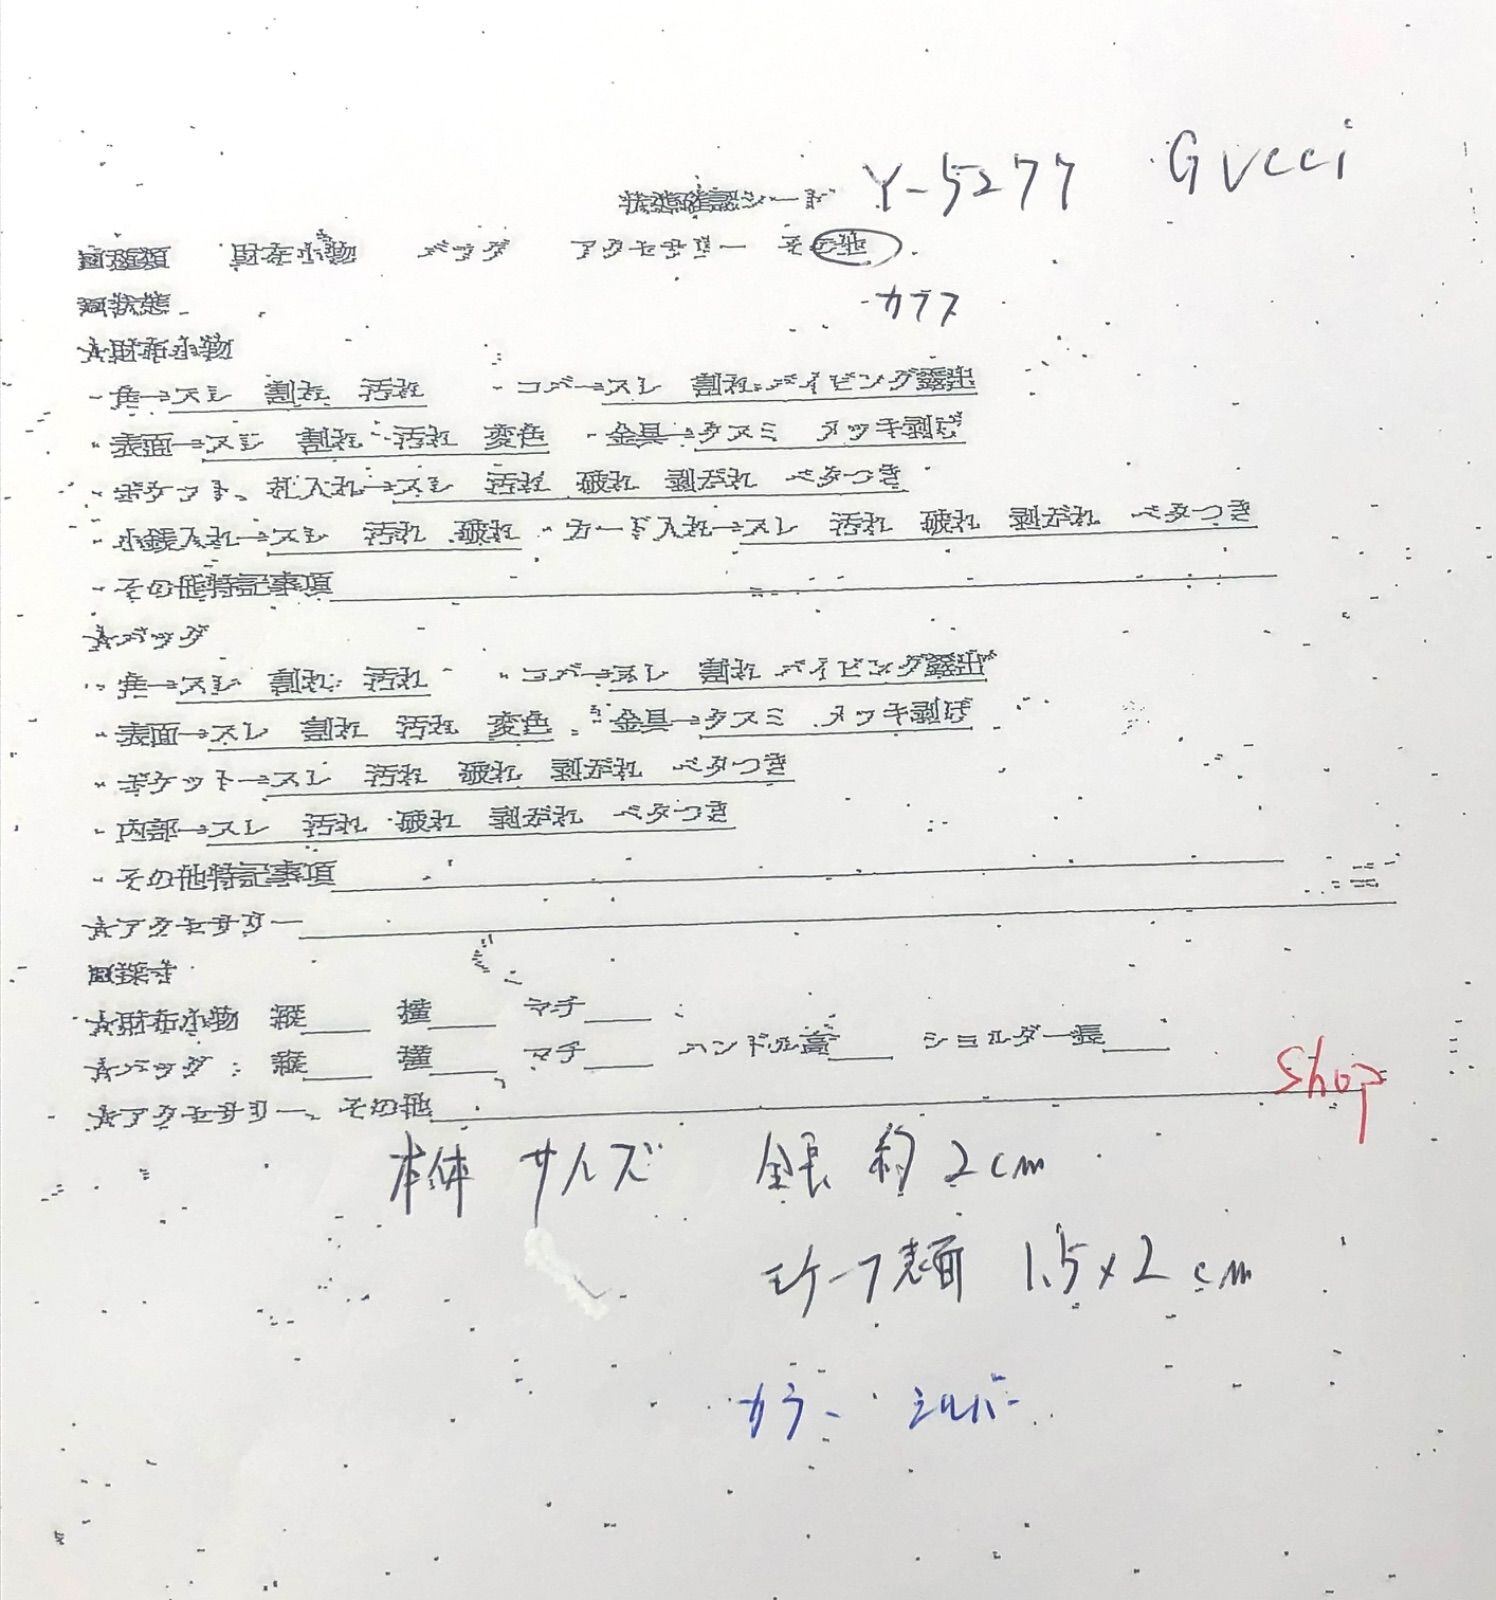 状態確認シート Y-5277 GUCCI
■種類 財布小物 バッグ アクセサリー その他
■状態 カフス
☆財布小物
・角→スレ 割れ 汚れ ・コバ→スレ 割れ パイピング露出
・表面→スレ 割れ 汚れ 変色 ・金具→クスミ メッキ剥げ
・ポケット、札入れ→スレ 汚れ 破れ 剥がれ ベタつき
・小銭入れ→スレ 汚れ 破れ ・カード入れ→スレ 汚れ 破れ 剥がれ ベタつき
・その他特記事項
☆バッグ
・角→スレ 割れ 汚れ ・コバ→スレ 割れ パイピング露出
・表面→スレ 割れ 汚れ 変色 ・金具→クスミ メッキ剥げ
・ポケット→スレ 汚れ 破れ 剥がれ ベタつき
・内部→スレ 汚れ 破れ 剥がれ ベタつき
・その他特記事項
☆アクセサリー
■採寸
☆財布小物 縦 横 マチ
☆バッグ 縦 横 マチ ハンドル高 ショルダー長
☆アクセサリー、その他
shop
本体サイズ 全長 約2cm
モチーフ表面 1.5×2cm
カラー シルバー